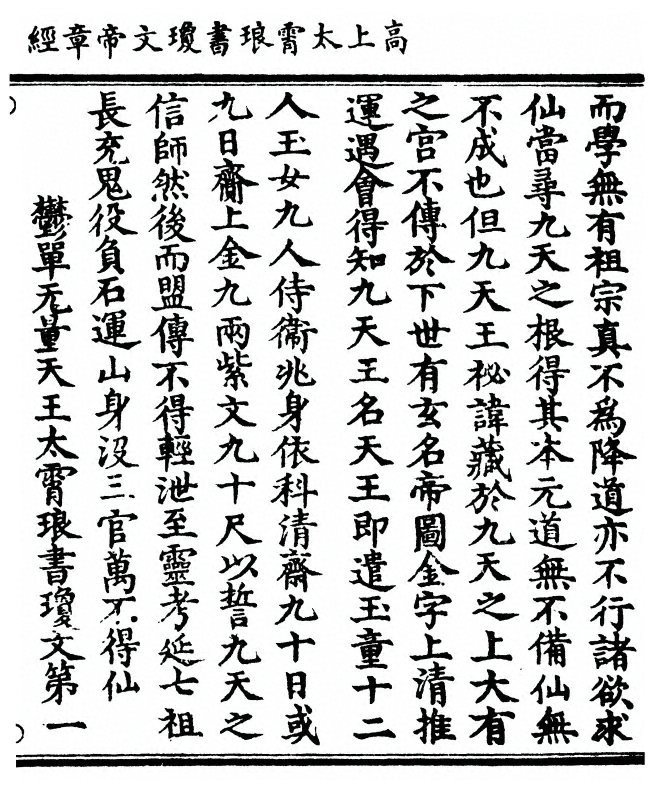 高上太霄琅書瓊文帝章經
而學無有祖宗真不為降道亦不行諸欲求
仙當尋九天之根得其本元道無不備仙無
不成也但九天王祕諱藏於九天之上大有
之宮不傳於下世有玄名帝圖金字上清推
運遇會得知九天王名天王即遣玉童十二
人玉女九人侍衛兆身依科清齋九十日或
九日齋上金九兩紫文九十尺以誓九天之
信師然後而盟傳不得輕泄至靈考延七祖
長充鬼役負石運山身沒三官萬不得仙
鬱單无量天王太霄琅書瓊文第一